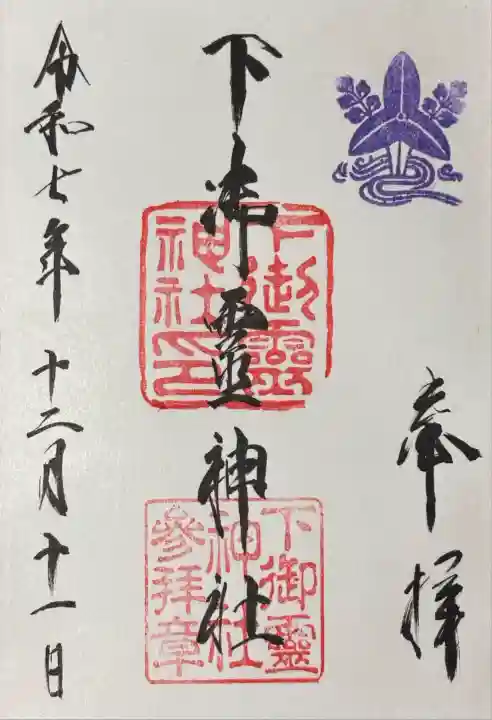 奉拝
下御霊神社
下御靈神社印
下御靈神社參拝章
令和七年十二月十一日